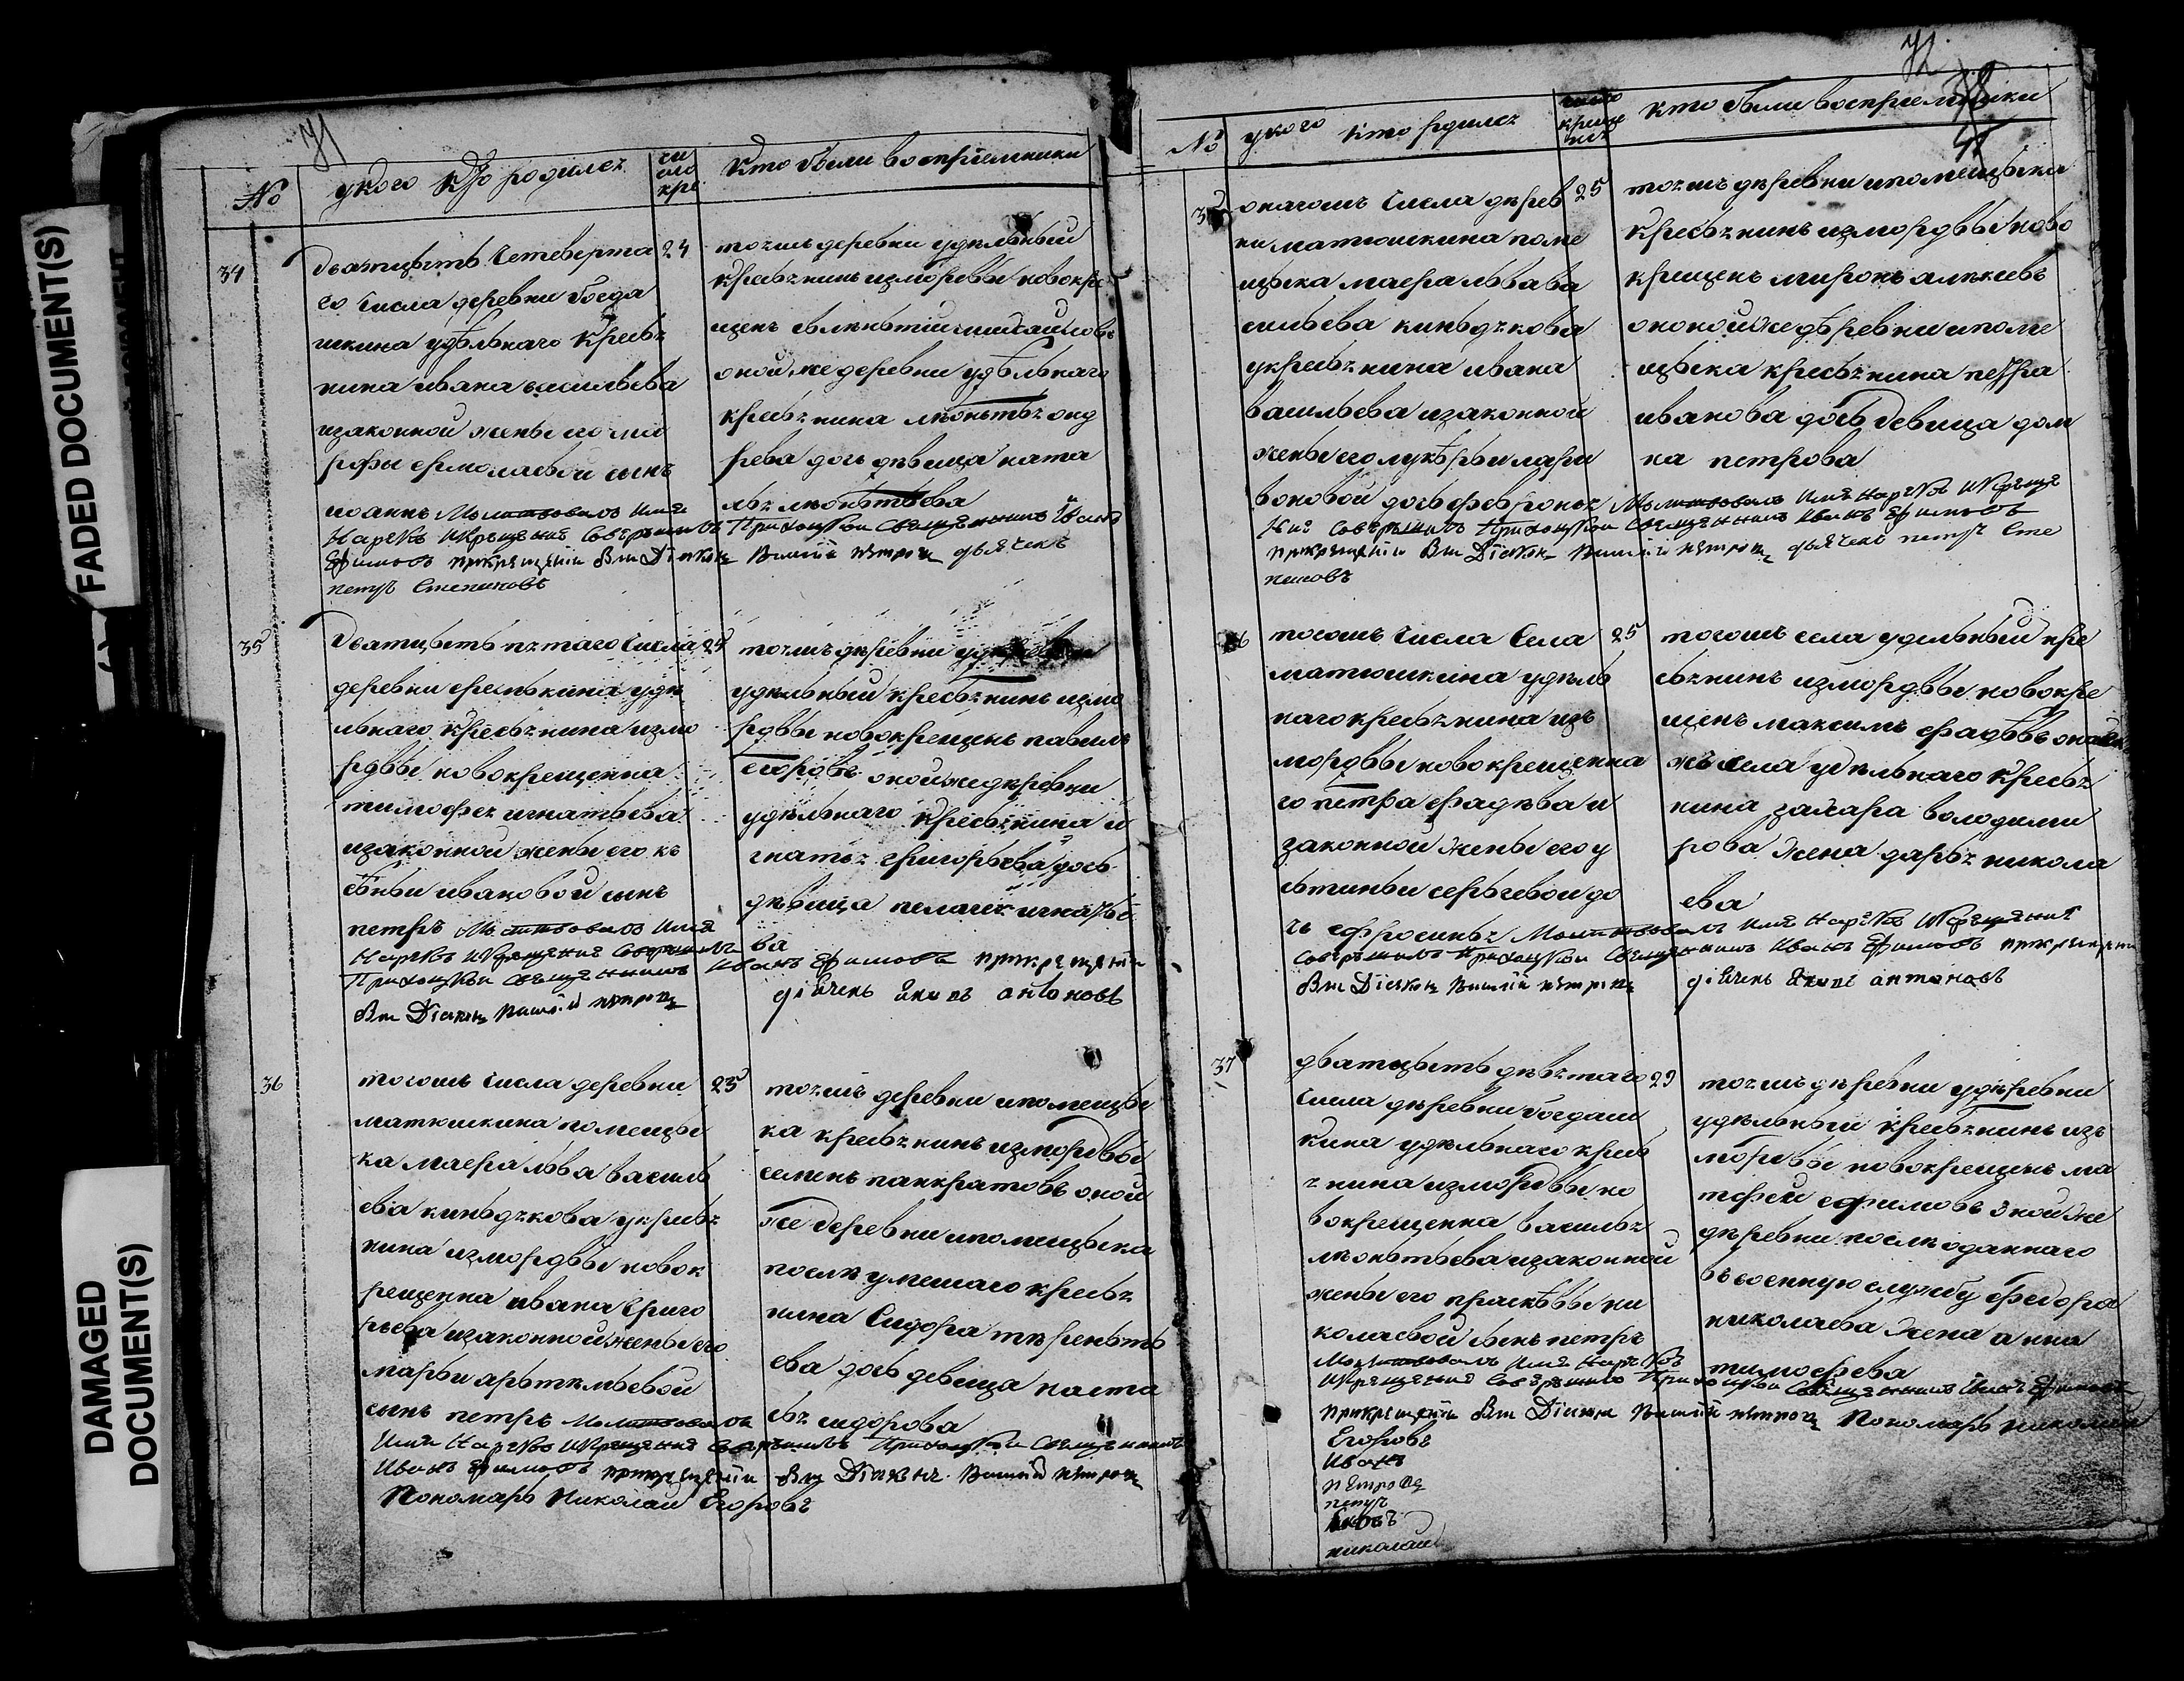 FADED DOCUMENT(S)
DAMAGED
DOCUMENT(S)
71
№
укого Кто родилсz
чи
сло
кре
Кто были воспрiемники
34
Дватцыть Четеверта
го Числа деревни богда
шкина удѣльнаго кресьz
нина ивана васильева
изаконной жены его ма
рфы ермолаевой сынъ
иоаннъ Молитвовалъ Имя
Нарѣкъ Икрѣщѣние Совѣршилъ Приходцкои Свѣщѣнникъ Иванъ
Ефимовъ прикрещенiи был Дiаконъ Василiй петровъ дьячекъ
петръ Степановъ
24
тоzжъ деревни удѣльный
кресьzнинъ измордвы новокре
щенъ
оной же деревни удѣльнаго
кресьzнина лѣоньтьz анд
рева дочь дѣвица ната
льz лѣоньтьева
35
Дватцыть пzтаго Числа
деревни удѣ
льнаго кресьzнина измо
рдвы новокрещенна
тимофеz игнатьева
изаконной жены его
ивановой сынъ
петръ Молитвовалъ Имя
Нарѣкъ Икрящение Совершилъ
Приходцкои Свѣщенникъ Иванъ Ефимовъ прикрещенiи
был Дiаконъ Василiй петровъ дiячекъ Яковъ антоновъ
24
тоzжъ дѣревни
удѣльный кресьzнинъ измо
рдвы новокрещенъ павилъ
егоровъ оной же дѣревни
удѣльнаго кресьzнина и
гнатьz григорьева дочь
дѣвица пелагеz игнатье
ва
36
тогожъ Числа деревни
матюшкина помещы
ка маера льва василь
ева киньдzкова укресьz
нина измордвы новок
рещенна ивана Григо
рьева изаконной жены его
марьи арьтѣмьевой
сынъ петръ Молитвовалъ
Имя Нарѣкъ Икрящение Совершилъ Приходцкои Свѣщенникъ
Иванъ Ефимовъ прикрещенiи был Дiаконъ Василiй петровъ
Пономарь Николаи Егоровъ
25
тоzжъ деревни ипомещы
ка кресьzнинъ измордвы
семенъ панкратовъ оной
же деревни ипомещыка
послѣ умешаго кресьz
нина Сидора тѣреньть
ева дочь девица наста
сьz сидорова
72
№
укого Кто рдилсz
число
креще
ниz
кто были воспрiемники
онагожъ Числа дѣрев
ни матюшкина поме
щыка маера льва ва
сильева киньдzкова
укресьzнина ивана
васильева изаконной
жены его лукѣрьи лари
воновой дочь февроньz Молитвовалъ Имя Нарѣкъ Икрѣще
ние Совѣршилъ Приходцкои Свѣщѣнникъ Иванъ Ефимовъ
прикрещенiи был Дiаконъ Василiй петровъ дьячекъ петръ Сте
пановъ
25
тоzжъ дѣревни ипомещыка
кресьzнинъ измордвы ново
крещенъ миронъ алѣкѣевъ
ононой же дѣревни ипоме
щыка кресьzнина петра
иванова дочь девица дом
на петрова
тогожъ Числа Села
матюшкина удѣль
наго кресьzнина изъ
мордвы новокрещенна
го петра фадѣва и
законной жены его у
сьтиньи серьгевои до
чь ефросиньz Молитвовалъ имя Нарѣкъ Икрѣщение
Совѣршилъ Приходцкои Свѣщѣнникъ Иванъ Ефимовъ прикрещенiи
был Дiаконъ Василiй петровъ дiячекъ Яковъ антоновъ
25
тогожъ села удельный кре
сьzнинъ измордвы новокре
щенъ максимъ фадѣвъ
жъ села удѣльнаго кресьz
нина захара володими
рова жена дарьz никола
ева
37
дватцыть дѣвzтаго
Числа дѣревни богдаш
кина удѣльнаго кресь
zнина измордвы но
вокрещенна васильz
лѣоньтьева изаконной
жены его прасковьи ни
колаевой сынъ петръ
Молитвовалъ Имя Нарѣкъ
Икрящение Совѣршилъ Приходцкои Свѣщѣнникъ Иванъ Ефимовъ
прикрещенiи был Дiаконъ Василiй петровъ Пономарь николаи
Егоровъ
Иванъ
петровъ
петръ
Яковъ
николаи
29
тоzжъ дѣревни удѣревни
удѣльный кресьzнинъ изъ
мордвы новокрещенъ ма
тфей ефимовъ Оной же
дѣревни послѣ оданнаго
въ военную службу федора
николаева жена анна
тимофева